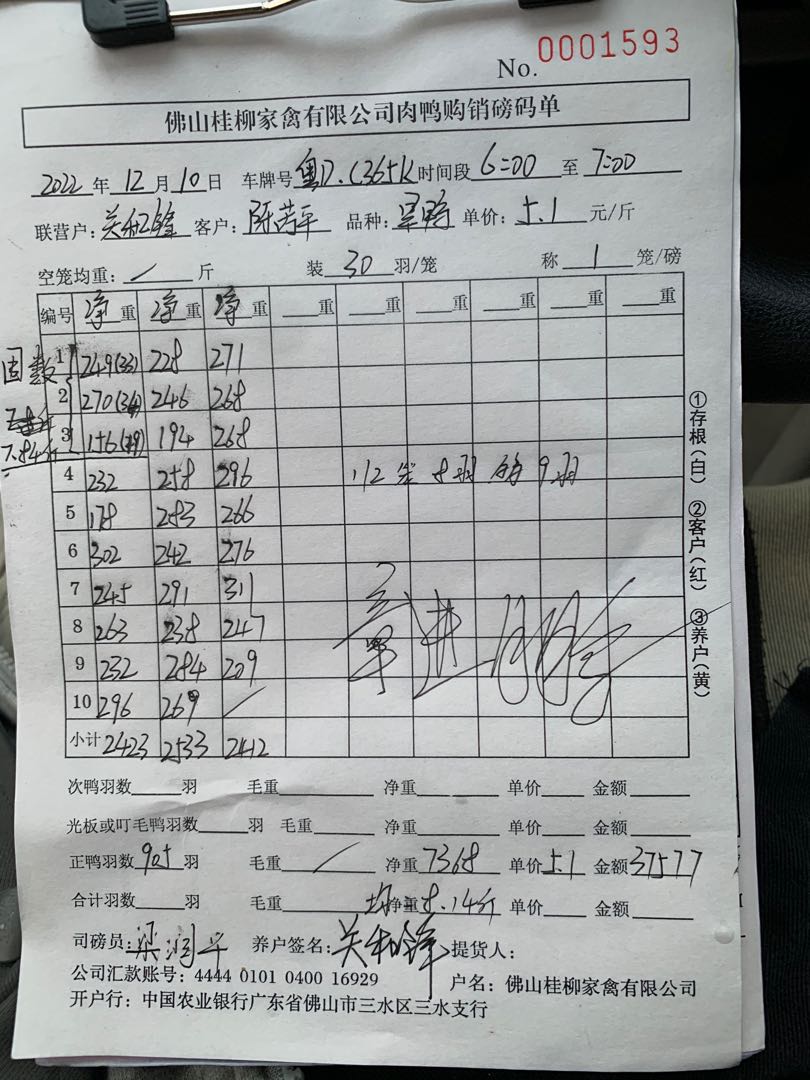 No. 0001593
佛山桂柳家禽有限公司肉鸭购销磅码单
2022 年 12 月 10 日 车牌号 粤D.C365K 时间段 6:00 至 7:00
联营户: 关和锋 客户: 陈若平 品种: 单价: 5.1 元/斤
空笼均重: / 斤 装 30 羽/笼 称 1 笼/磅
编号 净重 净重 净重 重 重 重 重 重 重
1 249(33) 228 271
2 270(34) 246 268
3 156(19) 194 268
7.84斤
4 232 258 296 112笼 8羽 9羽
5 178 283 266
6 302 242 276
7 245 291 311
8 263 238 247
9 232 284 209
10 296 269 /
小计 2423 2533 2412
次鸭羽数 羽 毛重 净重 单价 金额
光板或叮毛鸭羽数 羽 毛重 净重 单价 金额
正鸭羽数 905 羽 毛重 / 净重 7368 单价 5.1 金额 37577
合计羽数 羽 毛重 均 净重 8.14斤 单价 金额
司磅员: 梁润平 养户签名: 关和锋 提货人:
公司汇款账号: 4444 0101 0400 16929 户名: 佛山桂柳家禽有限公司
开户行: 中国农业银行广东省佛山市三水区三水支行
①存根(白) ②客户(红) ③养户(黄)